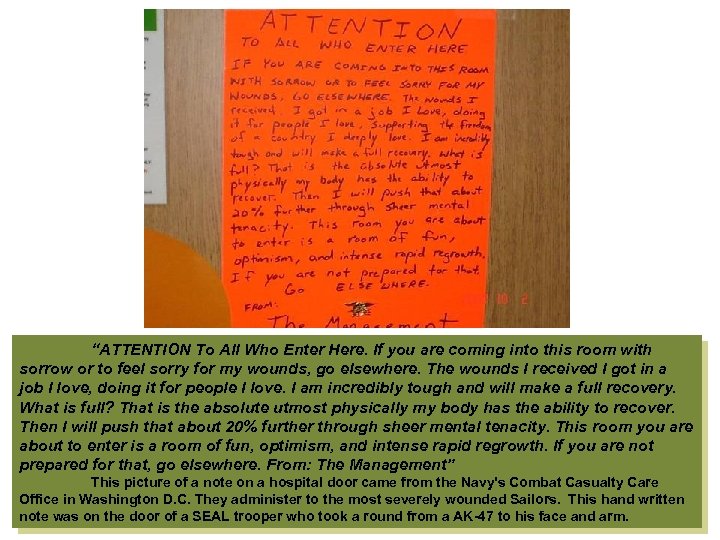 ATTENTION
TO ALL WHO ENTER HERE
IF YOU ARE COMING INTO THIS ROOM
WITH SORROW OR TO FEEL SORRY FOR MY
WOUNDS, GO ELSEWHERE. The wounds I
received I got in a job I love, doing
it for people I love, supporting the freedom
of a country I deeply love. I am incredibly
tough and will make a full recovery. What is
full? That is the absolute utmost
physically my body has the ability to
recover. Then I will push that about
20% further through sheer mental
tenacity. This room you are about
to enter is a room of fun,
optimism, and intense rapid regrowth.
If you are not prepared for that,
GO ELSE WHERE.
FROM:
The Management
“ATTENTION To All Who Enter Here. If you are coming into this room with
sorrow or to feel sorry for my wounds, go elsewhere. The wounds I received I got in a
job I love, doing it for people I love. I am incredibly tough and will make a full recovery.
What is full? That is the absolute utmost physically my body has the ability to recover.
Then I will push that about 20% further through sheer mental tenacity. This room you are
about to enter is a room of fun, optimism, and intense rapid regrowth. If you are not
prepared for that, go elsewhere. From: The Management”
This picture of a note on a hospital door came from the Navy's Combat Casualty Care
Office in Washington D.C. They administer to the most severely wounded Sailors. This hand written
note was on the door of a SEAL trooper who took a round from a AK-47 to his face and arm.